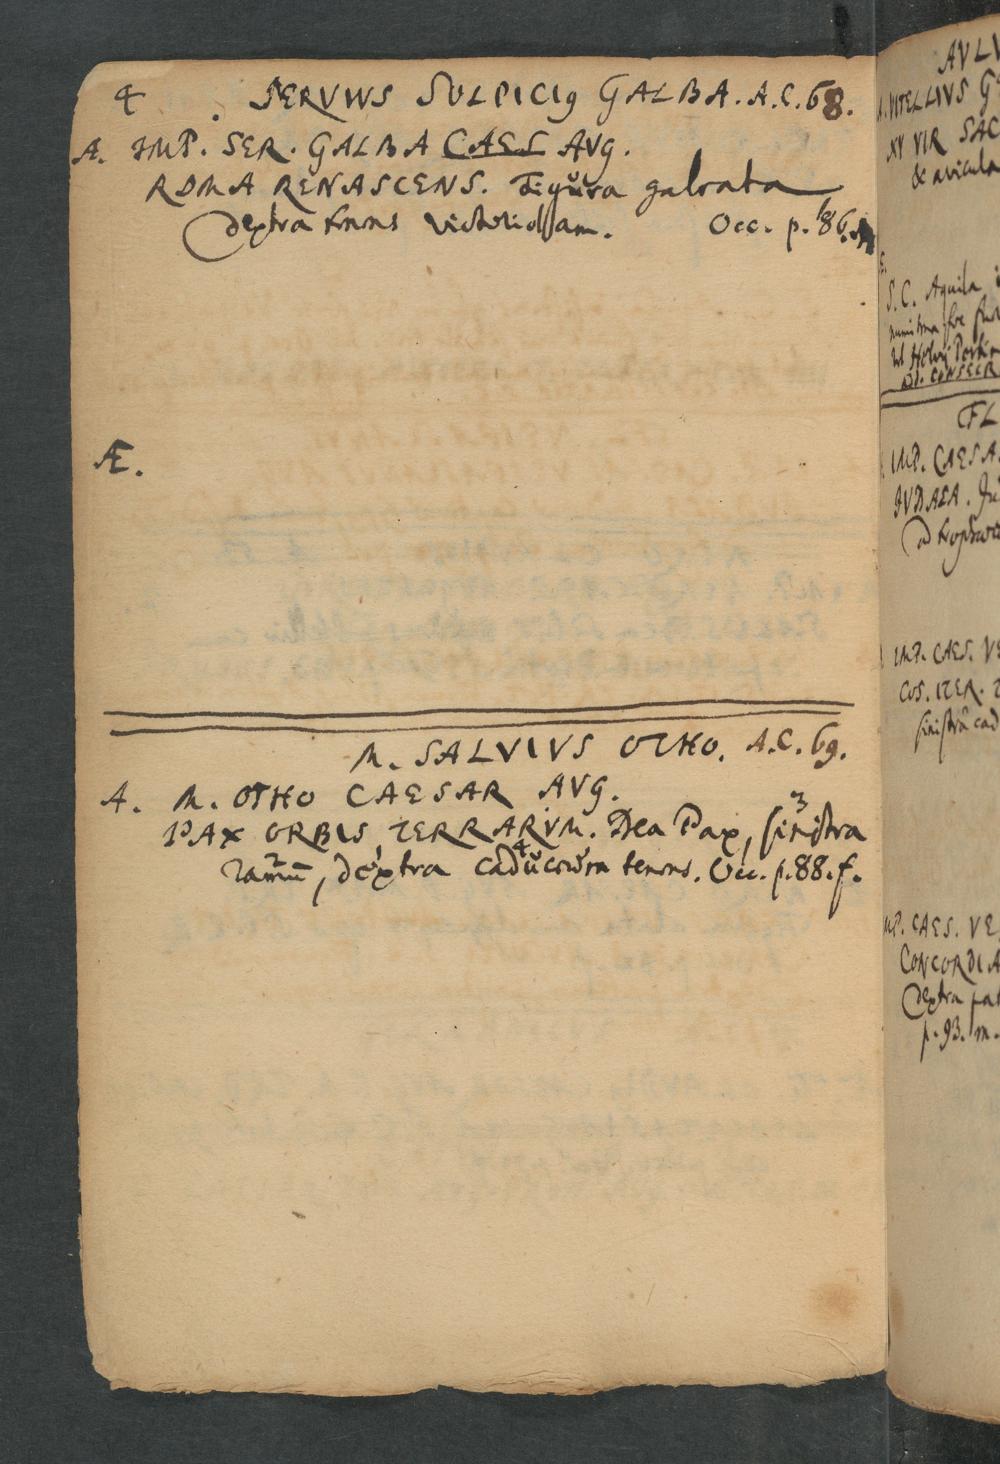 4 SERVIVS SULPICIꝰ GALBA. A.C. 68.
A. IMP. SER. GALBA CAES AVG.
ROMA RENASCENS. Figŭra galeata
dextra tenens victoriolam. Occ. p. 86.
Æ.
M. SALVIVS OTHO. A.C. 69.
A. M. OTHO CAESAR AVG.
PAX ORBIS TERRARVM. Dea Pax, sinistra 3
ramū 2, dextra 1 cadŭceŭm 4 tenens. Occ. p. 88. f.
AVLV
A. VITELLIVS G
XV VIR SAC
& avicula
S. C. Aquila
vel Helvij Pertin
DI. CONSECR
FL
IMP. CAESA
IVDAEA.
IMP. CAES. VE
COS. ITER. T
sinistrâ cad
MP. CAES. VE
CONCORDIA
dextra pat
p. 93. m.